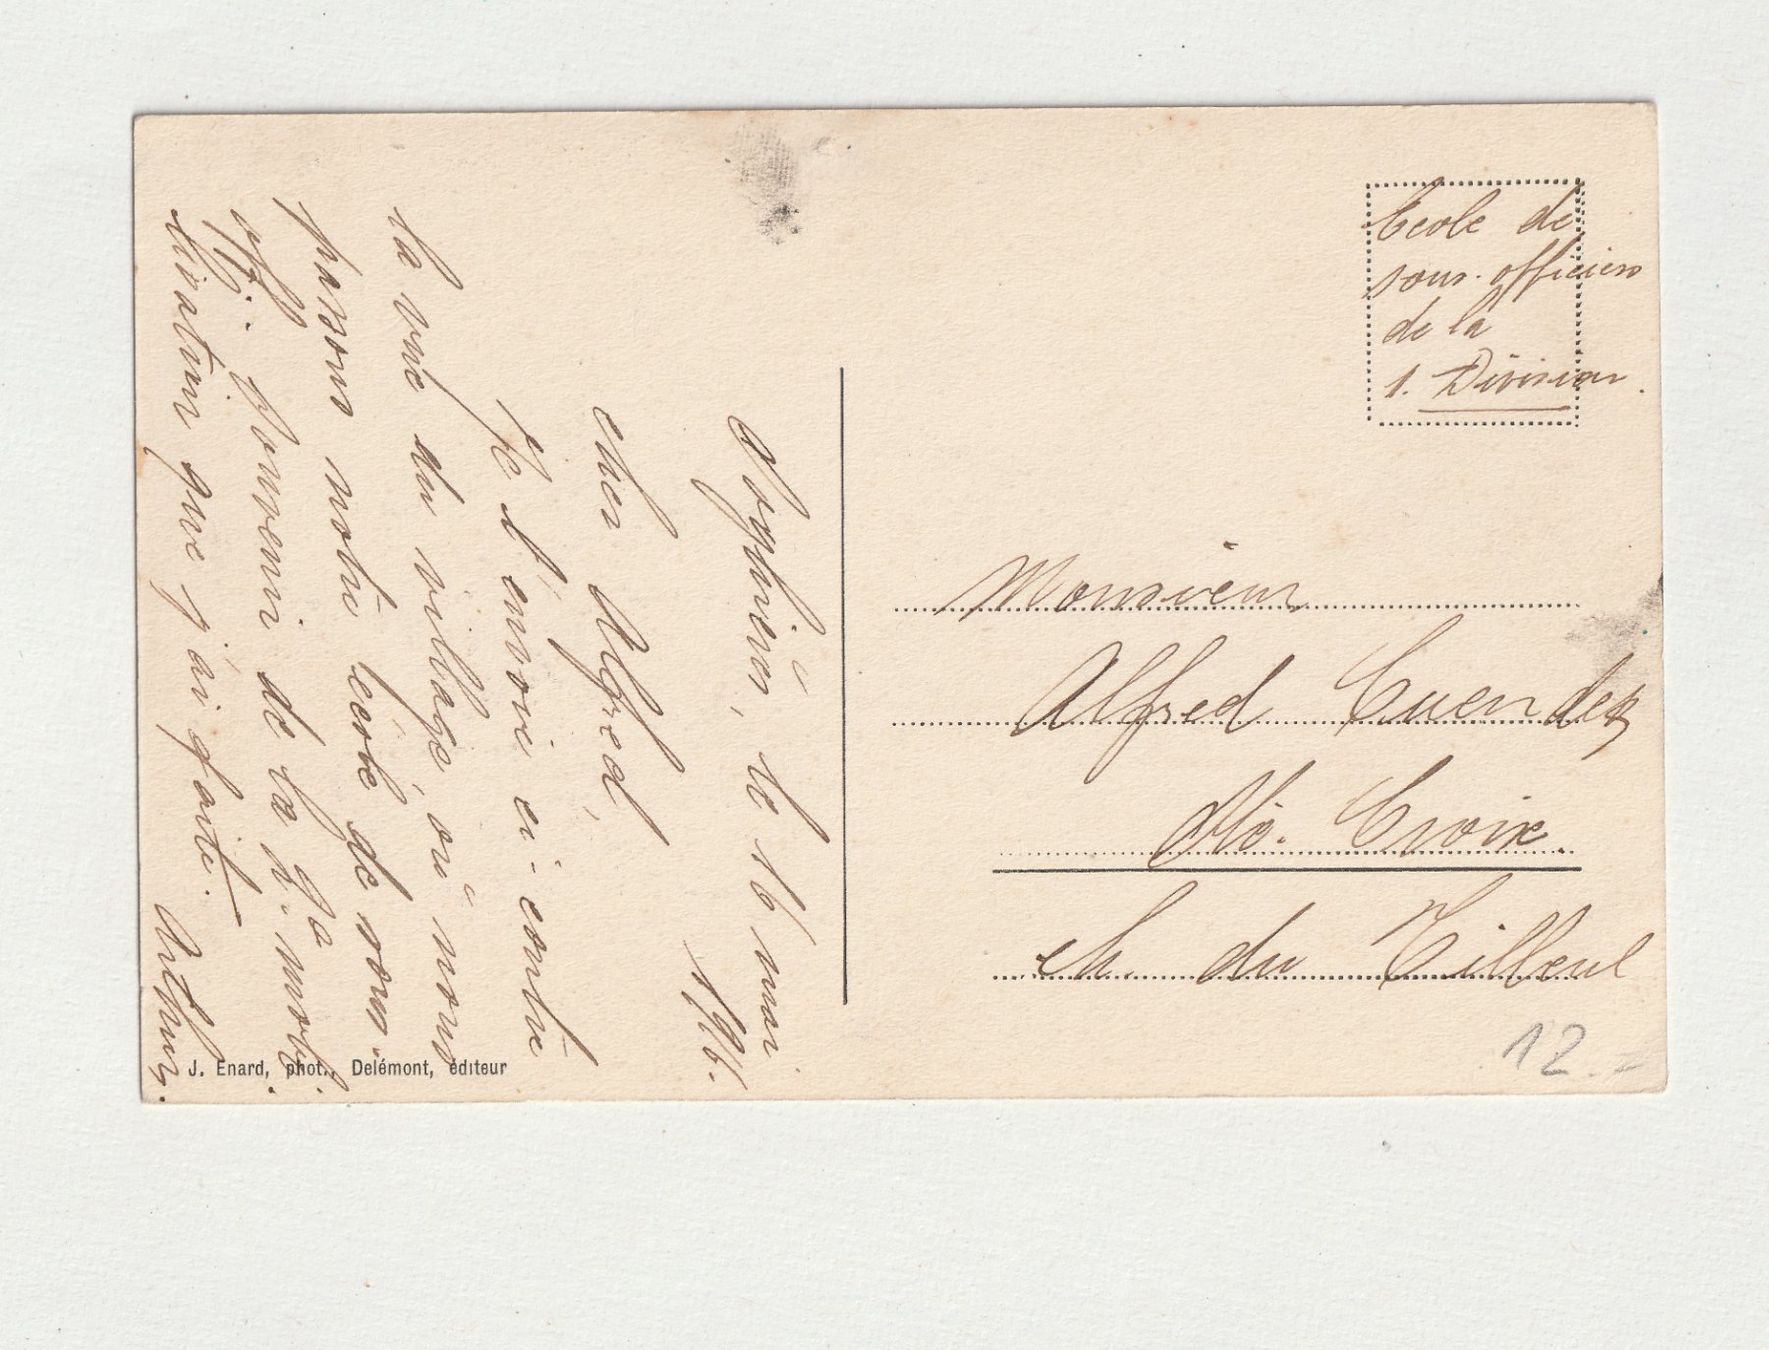 Soyhières, le 16 mai
1916.
cher Alfred
Je t'envoie ci-contre
la vue du village, où nous
passons notre école de sous-
offi. Souvenir de la 3a mobi-
lisation que j'ai faite.
Arthur.
J. Enard, phot., Delémont, éditeur
Ecole de
sous-officiers
de la
1. Division.
Monsieur
Alfred Cuendez
Ste. Croix.
ch. du Tilleul
12.-